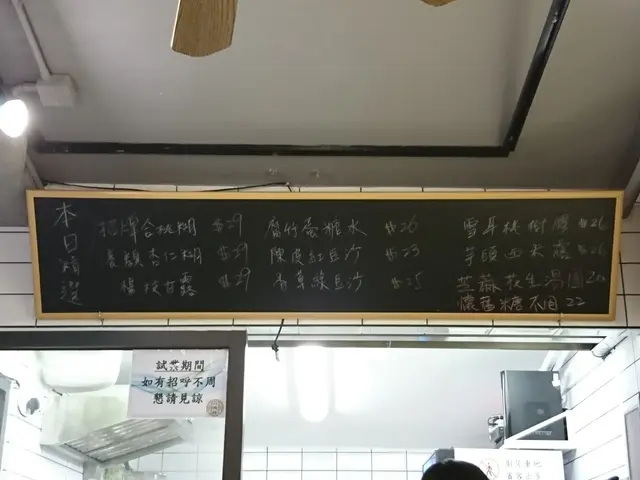 本日精選
招牌合桃糊 $29
養顏杏仁糊 $29
楊枝甘露 $29
腐竹蛋糖水 $26
陳皮紅豆沙 $23
香草綠豆沙 $25
雪耳桃樹膠 $26
芋頭西米露 $26
花生湯圓
懷舊糖不甩 22
試業期間
如有招呼不周
懇請見諒